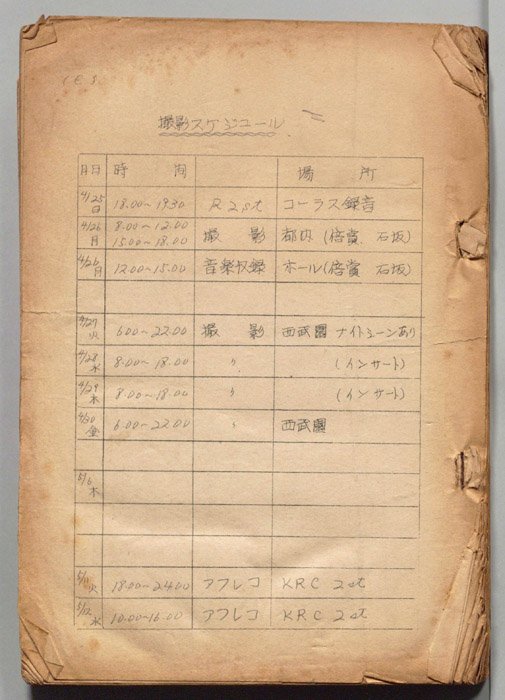 撮影スケジュール
月日 時 間 場 所
4/25 日 18.00〜19.30 R 2st コーラス録音
4/26 月 8.00〜12.00 15.00〜18.00 撮 影 都内(倍賞 石坂)
4/26 月 12.00〜15.00 音楽収録 ホール(倍賞 石坂)
4/27 火 6.00〜22.00 撮 影 西武園 ナイトシーンあり
4/28 水 8.00〜18.00 〃 (インサート)
4/29 木 8.00〜18.00 〃 (インサート)
4/30 金 6.00〜22.00 〃 西武園
5/6 木
5/11 火 18.00〜24.00 アフレコ KRC 2st
5/12 水 10.00〜16.00 アフレコ KRC 2st